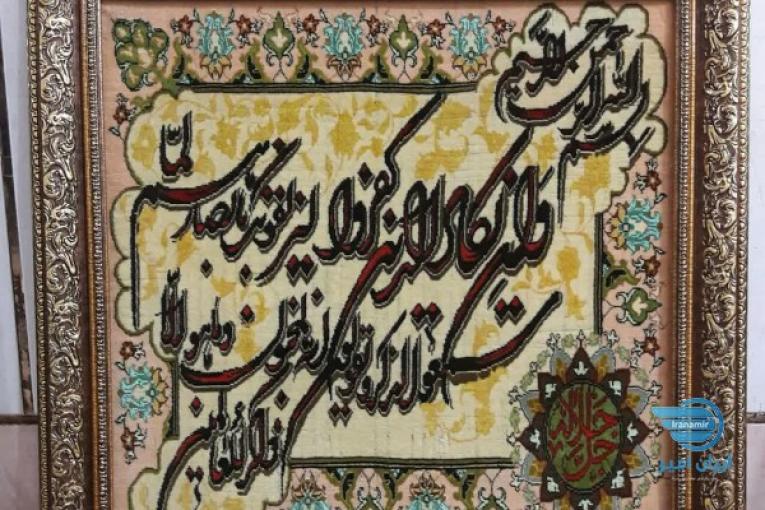 بسم الله الرحمن الرحیم
وان یکاد الذین کفروا لیزلقونک بابصارهم لما
سمعوا الذکر و یقولون انه لمجنون وما هو الا
ذکر للعالمین
جل جلاله
Iranamir
ایران امیر